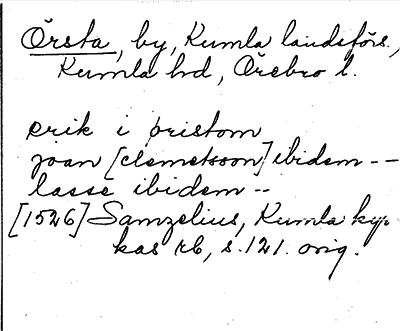 Örsta, by, Kumla landsförs.,
Kumla hd, Örebro l.
erik i øristom
joan [clemetsson] ibidem --
lasse ibidem --
[1526] Samzelius, Kumla kyr-
kas rb, s. 121. orig.